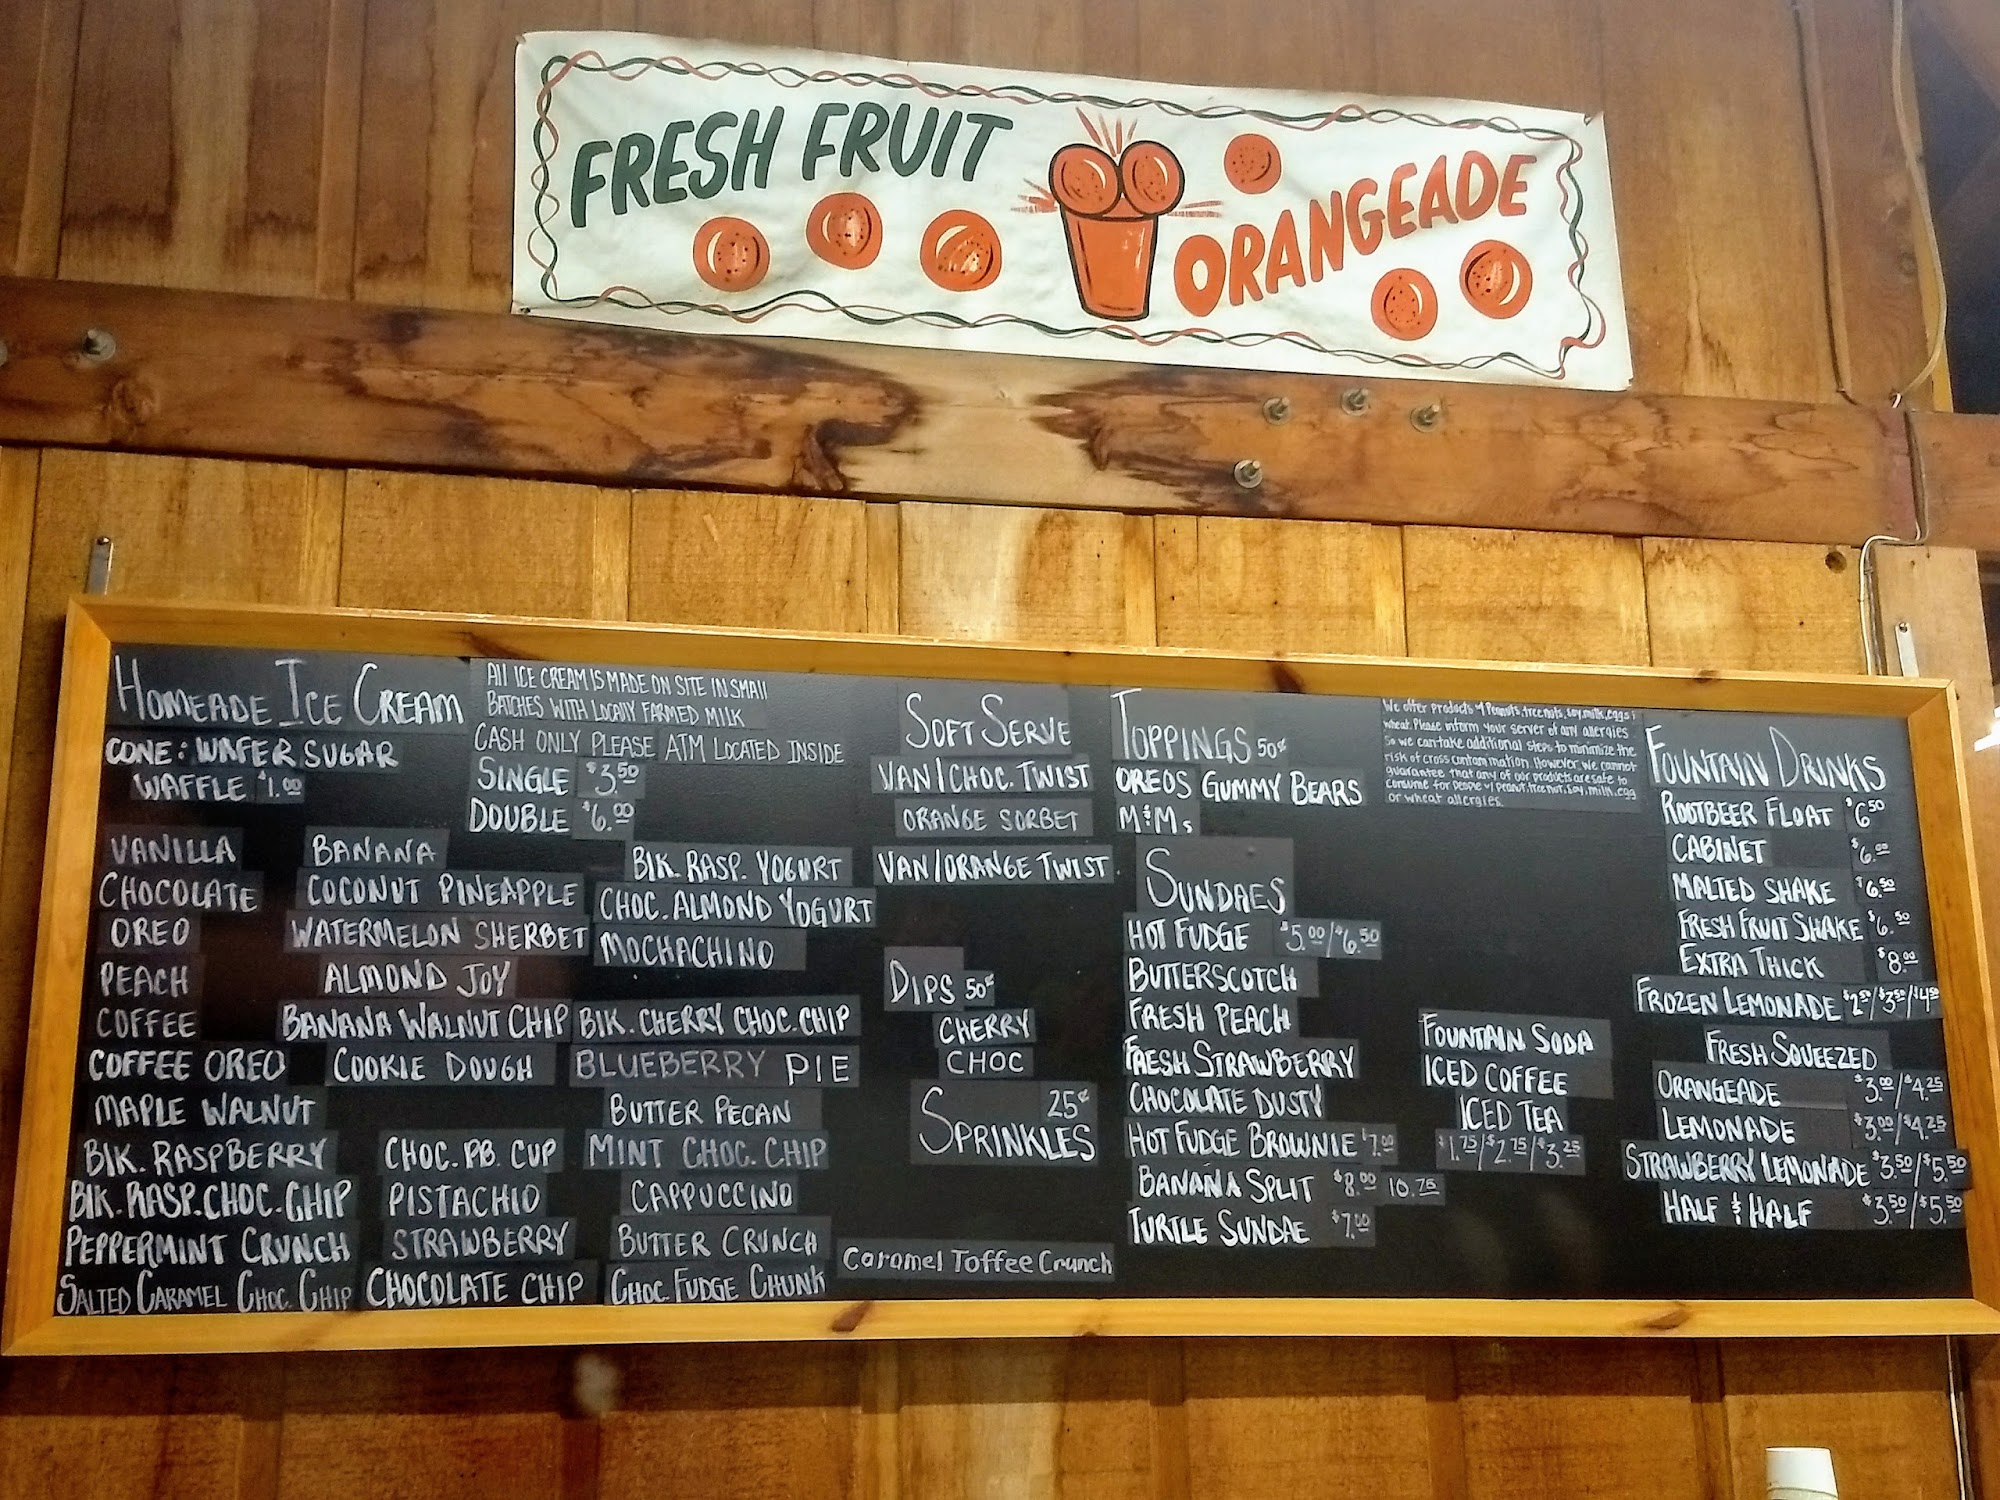 FRESH FRUIT
ORANGEADE
HOMEADE ICE CREAM
CONE: WAFER SUGAR
WAFFLE $1.00
All ICE CREAM IS MADE ON SITE IN SMAll
BATCHES WITH LOCAlly FARMED MILK
CASH ONLY PLEASE ATM LOCATED INSIDE
SINGLE $3.50
DOUBLE $6.00
VANILLA
CHOCOLATE
OREO
PEACH
COFFEE
COFFEE OREO
MAPLE WALNUT
BlK. RASPBERRY
BlK. RASP. CHOC. CHIP
PEPPERMINT CRUNCH
SALTED CARAMEL CHOC. CHIP
BANANA
COCONUT PINEAPPLE
WATERMELON SHERBET
ALMOND JOY
BANANA WALNUT CHIP
COOKIE DOUGH
CHOC. PB. CUP
PISTACHIO
STRAWBERRY
CHOCOLATE CHIP
BlK. RASP. YOGURT
CHOC. ALMOND YOGURT
MOCHACHINO
BlK. CHERRY CHOC. CHIP
BLUEBERRY PIE
BUTTER PECAN
MINT CHOC. CHIP
CAPPUCCINO
BUTTER CRUNCH
CHOC. FUDGE CHUNK
Caramel Toffee Crunch
SOFT SERVE
VAN/CHOC. TWIST
ORANGE SORBET
VAN/ORANGE TWIST
DIPS 50¢
CHERRY
CHOC
SPRINKLES 25¢
TOPPINGS 50¢
OREOS GUMMY BEARS
M&Ms
We offer products w/ Peanuts, tree nuts, soy, milk, eggs &
wheat. Please inform your server of any allergies
so we can take additional steps to minimize the
risk of cross contamination. However, we cannot
guarantee that any of our products are safe to
consume for people w/ peanut, tree nut, soy, milk, egg
or wheat allergies.
SUNDAES
HOT FUDGE $5.00/$6.50
BUTTERSCOTCH
FRESH PEACH
FRESH STRAWBERRY
CHOCOLATE DUSTY
HOT FUDGE BROWNIE $7.00
BANANA SPLIT $8.00 10.75
TURTLE SUNDAE $7.00
FOUNTAIN SODA
ICED COFFEE
ICED TEA
$1.75/$2.75/$3.25
FOUNTAIN DRINKS
ROOTBEER FLOAT $6.50
CABINET $6.00
MALTED SHAKE $6.50
FRESH FRUIT SHAKE $6.50
EXTRA THICK $8.00
FROZEN LEMONADE $2.50/$3.50/$4.50
FRESH SQUEEZED
ORANGEADE $3.00/$4.25
LEMONADE $3.00/$4.25
STRAWBERRY LEMONADE $3.50/$5.50
HALF & HALF $3.50/$5.50